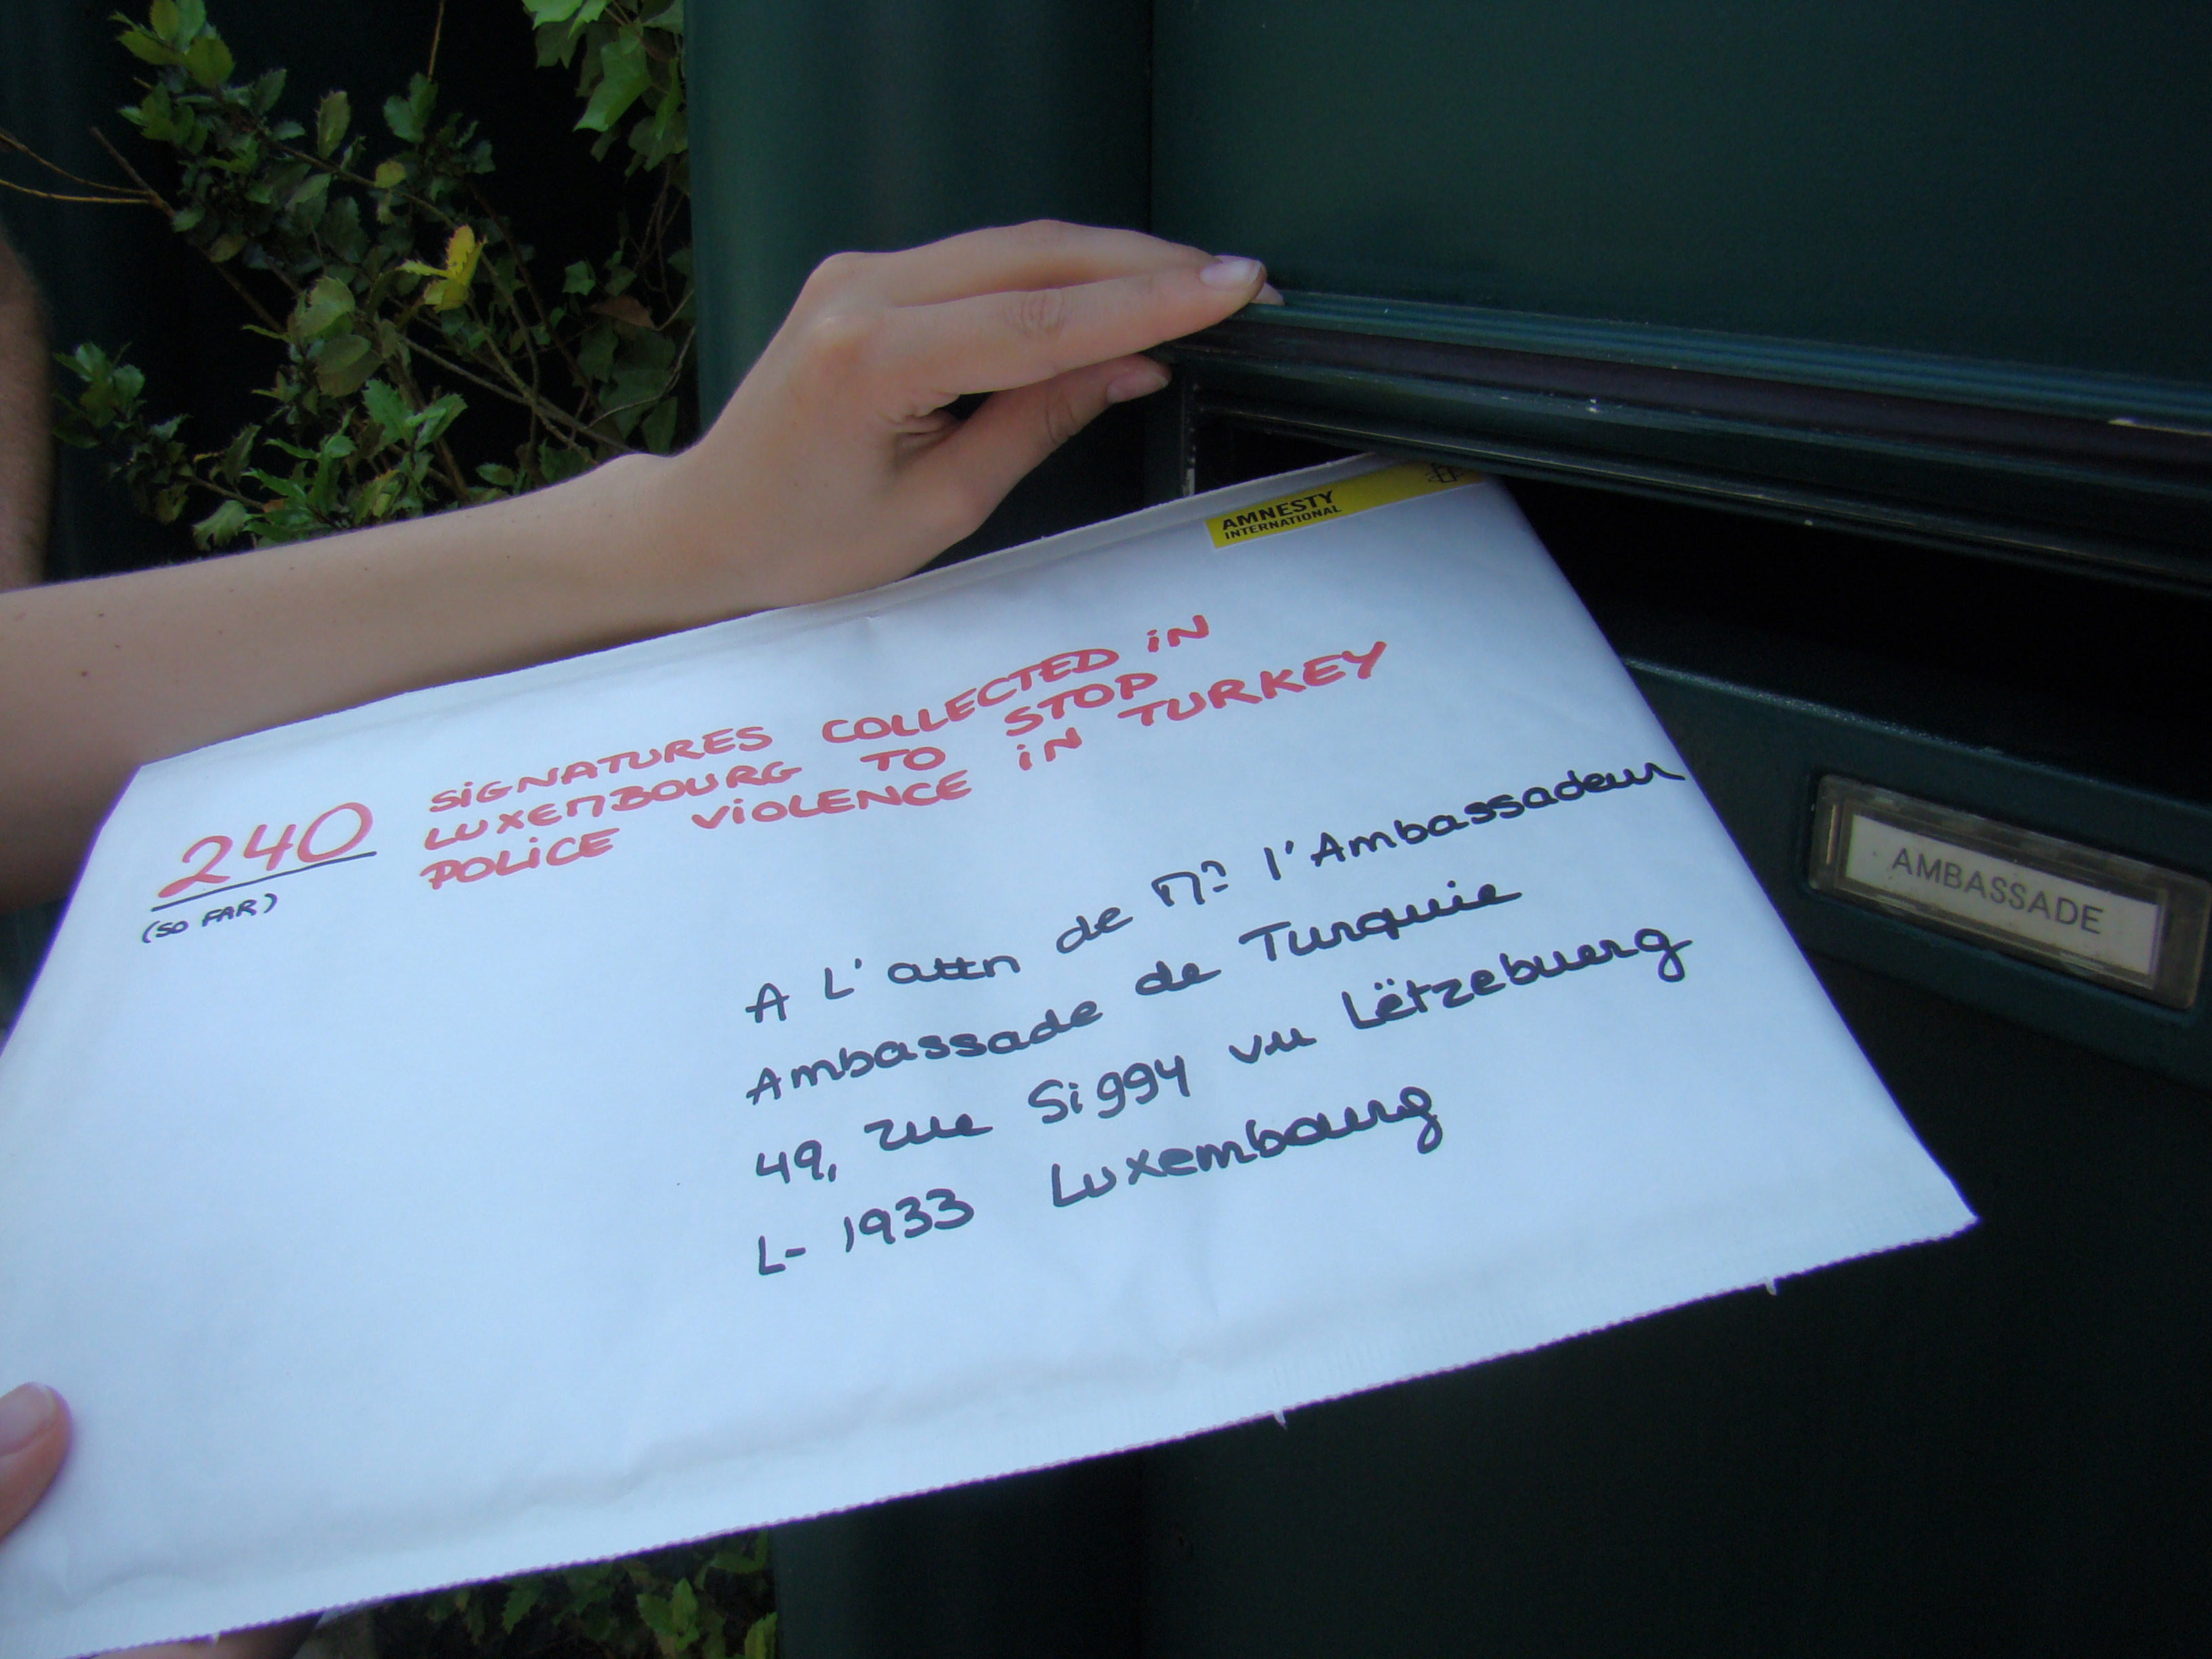 AMNESTY
INTERNATIONAL
240
(SO FAR)
SiGNATURES COLLECTED iN
LUXEMBOURG TO STOP
POLiCE ViOLENCE iN TURKEY
A L'attn de Mr l'Ambassadeur
Ambassade de Turquie
49, rue Siggy vu Lëtzebuerg
L-1933 Luxembourg
AMBASSADE